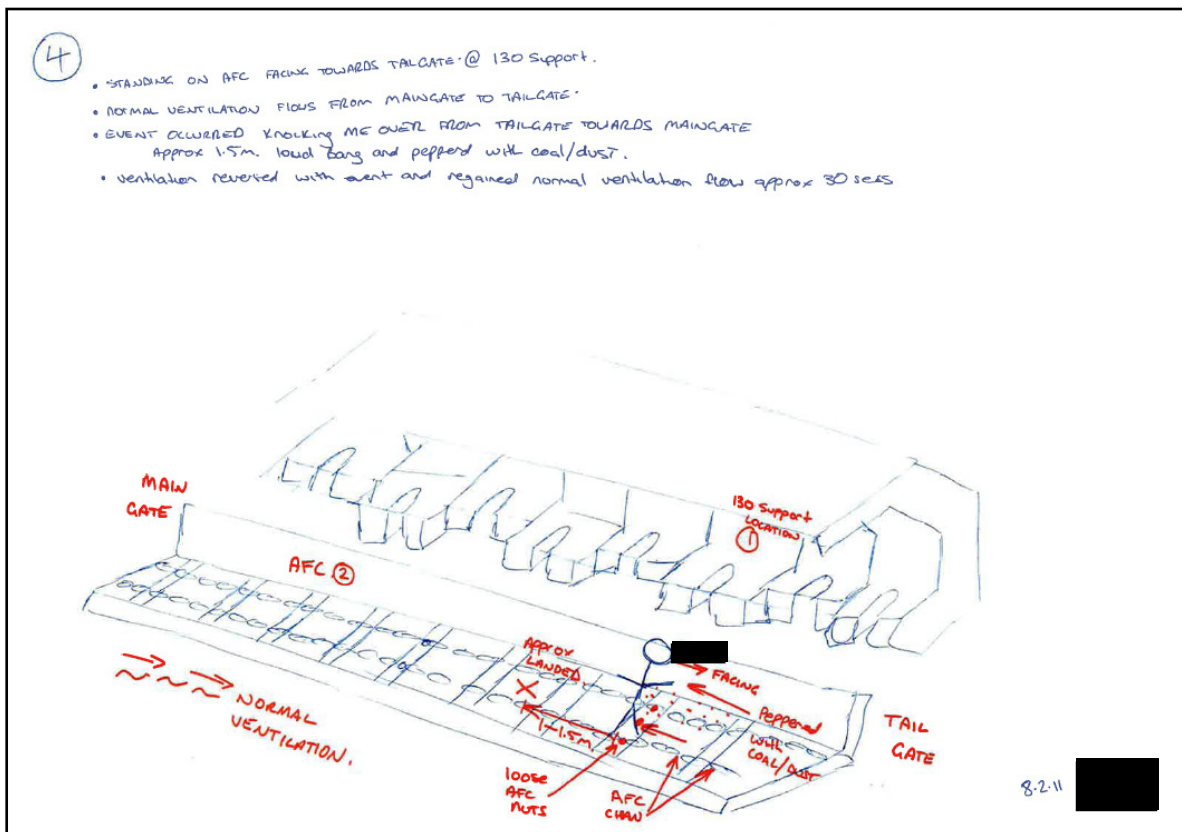 4
• STANDING ON AFC FACING TOWARDS TAILGATE. @ 130 Support.
• NORMAL VENTILATION FLOWS FROM MAINGATE TO TAILGATE.
• EVENT OCCURRED KNOCKING ME OVER FROM TAILGATE TOWARDS MAINGATE
Approx 1.5m. loud bang and pepperd with coal/dust.
• ventilation reversed with event and regained normal ventilation flow approx 30 secs
MAIN
GATE
130 Support
LOCATION
1
AFC 2
APPROX
LANDED
FACING
Peppered
with
COAL/DUST
TAIL
GATE
1-1.5m.
NORMAL
VENTILATION.
loose
AFC
NUTS
AFC
CHAN
8.2.11